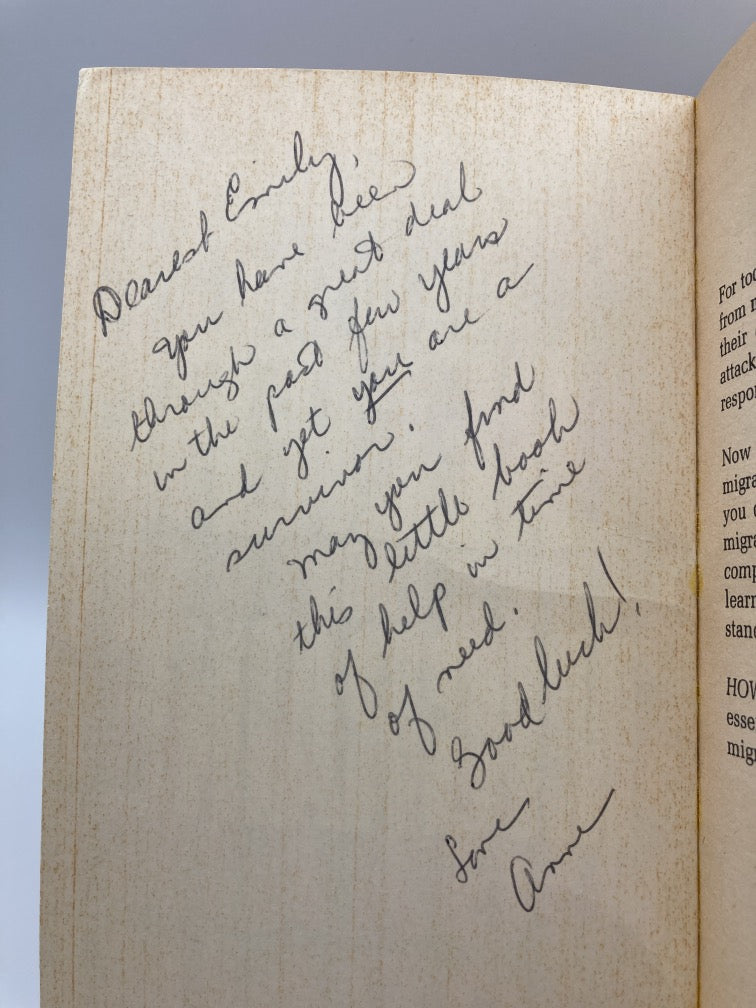 Dearest Emily,
you have been
through a great deal
in the past few years
and yet you are a
survivor.
May you find
this little book
of help in time
of need.
Good luck!
Love
Anne
For too
from m
their
attack
respon
Now
migra
you
migra
comp
learn
stand
HOW
esse
migr